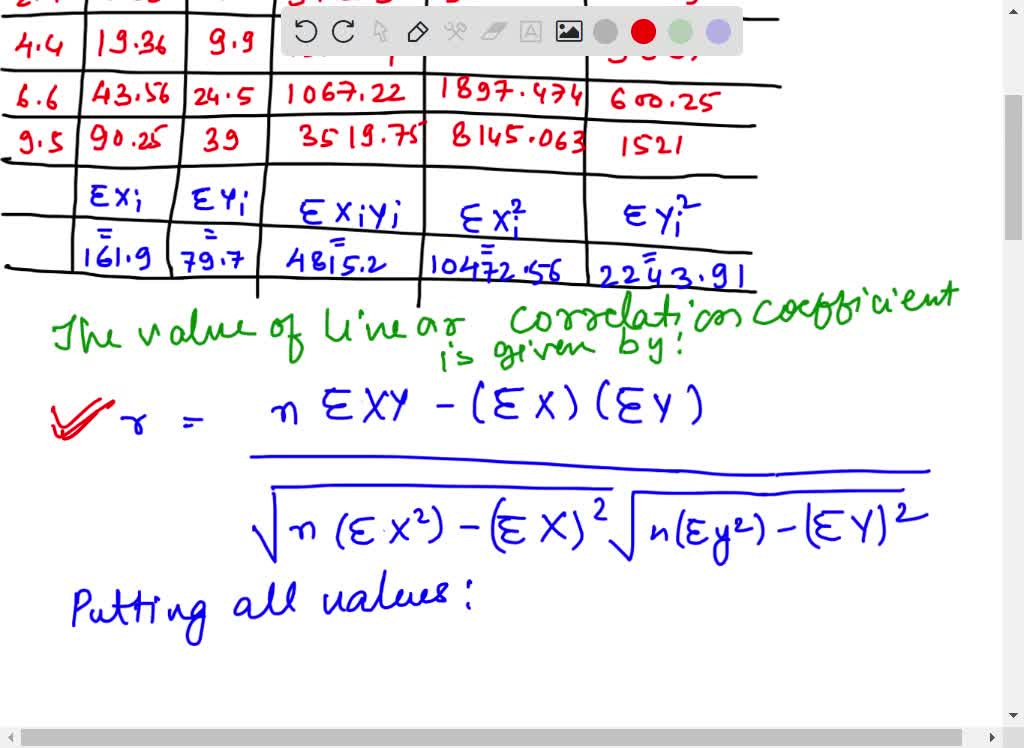 4.4 19.36 9.9
6.6 43.56 24.5 1067.22 1897.474 600.25
9.5 90.25 39 3519.75 8145.063 1521
Σxi Σyi Σxiyi Σxi² Σyi²
= = = = =
161.9 79.7 4815.2 10472.56 2243.91
The value of linear correlation coefficient
is given by:
r = n ΣXY - (ΣX) (ΣY)
√n (Σx²) - (ΣX)² √n(Σy²) - (ΣY)²
Putting all values: